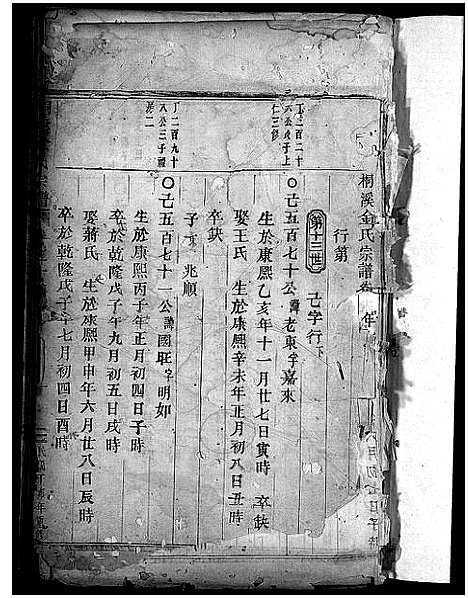 桐溪金氏宗譜卷
行第
第十三世 己字行下
丁三百二十
六公戊子上
仁三
〇己五百七十公諱老東字嘉來
生於康熙乙亥年十一月廿七日寅時 卒缺
娶王氏 生於康熙辛未年正月初八日丑時
卒缺
子 兆順
丁二百九十
八公三子
第二
〇己五百七十一公諱國旺字明如
生於康熙丙子年正月初四日子時
卒於乾隆戊子年九月初五日戌時
娶蔣氏 生於康熙甲申年六月廿八日辰時
卒於乾隆戊子年七月初四日酉時